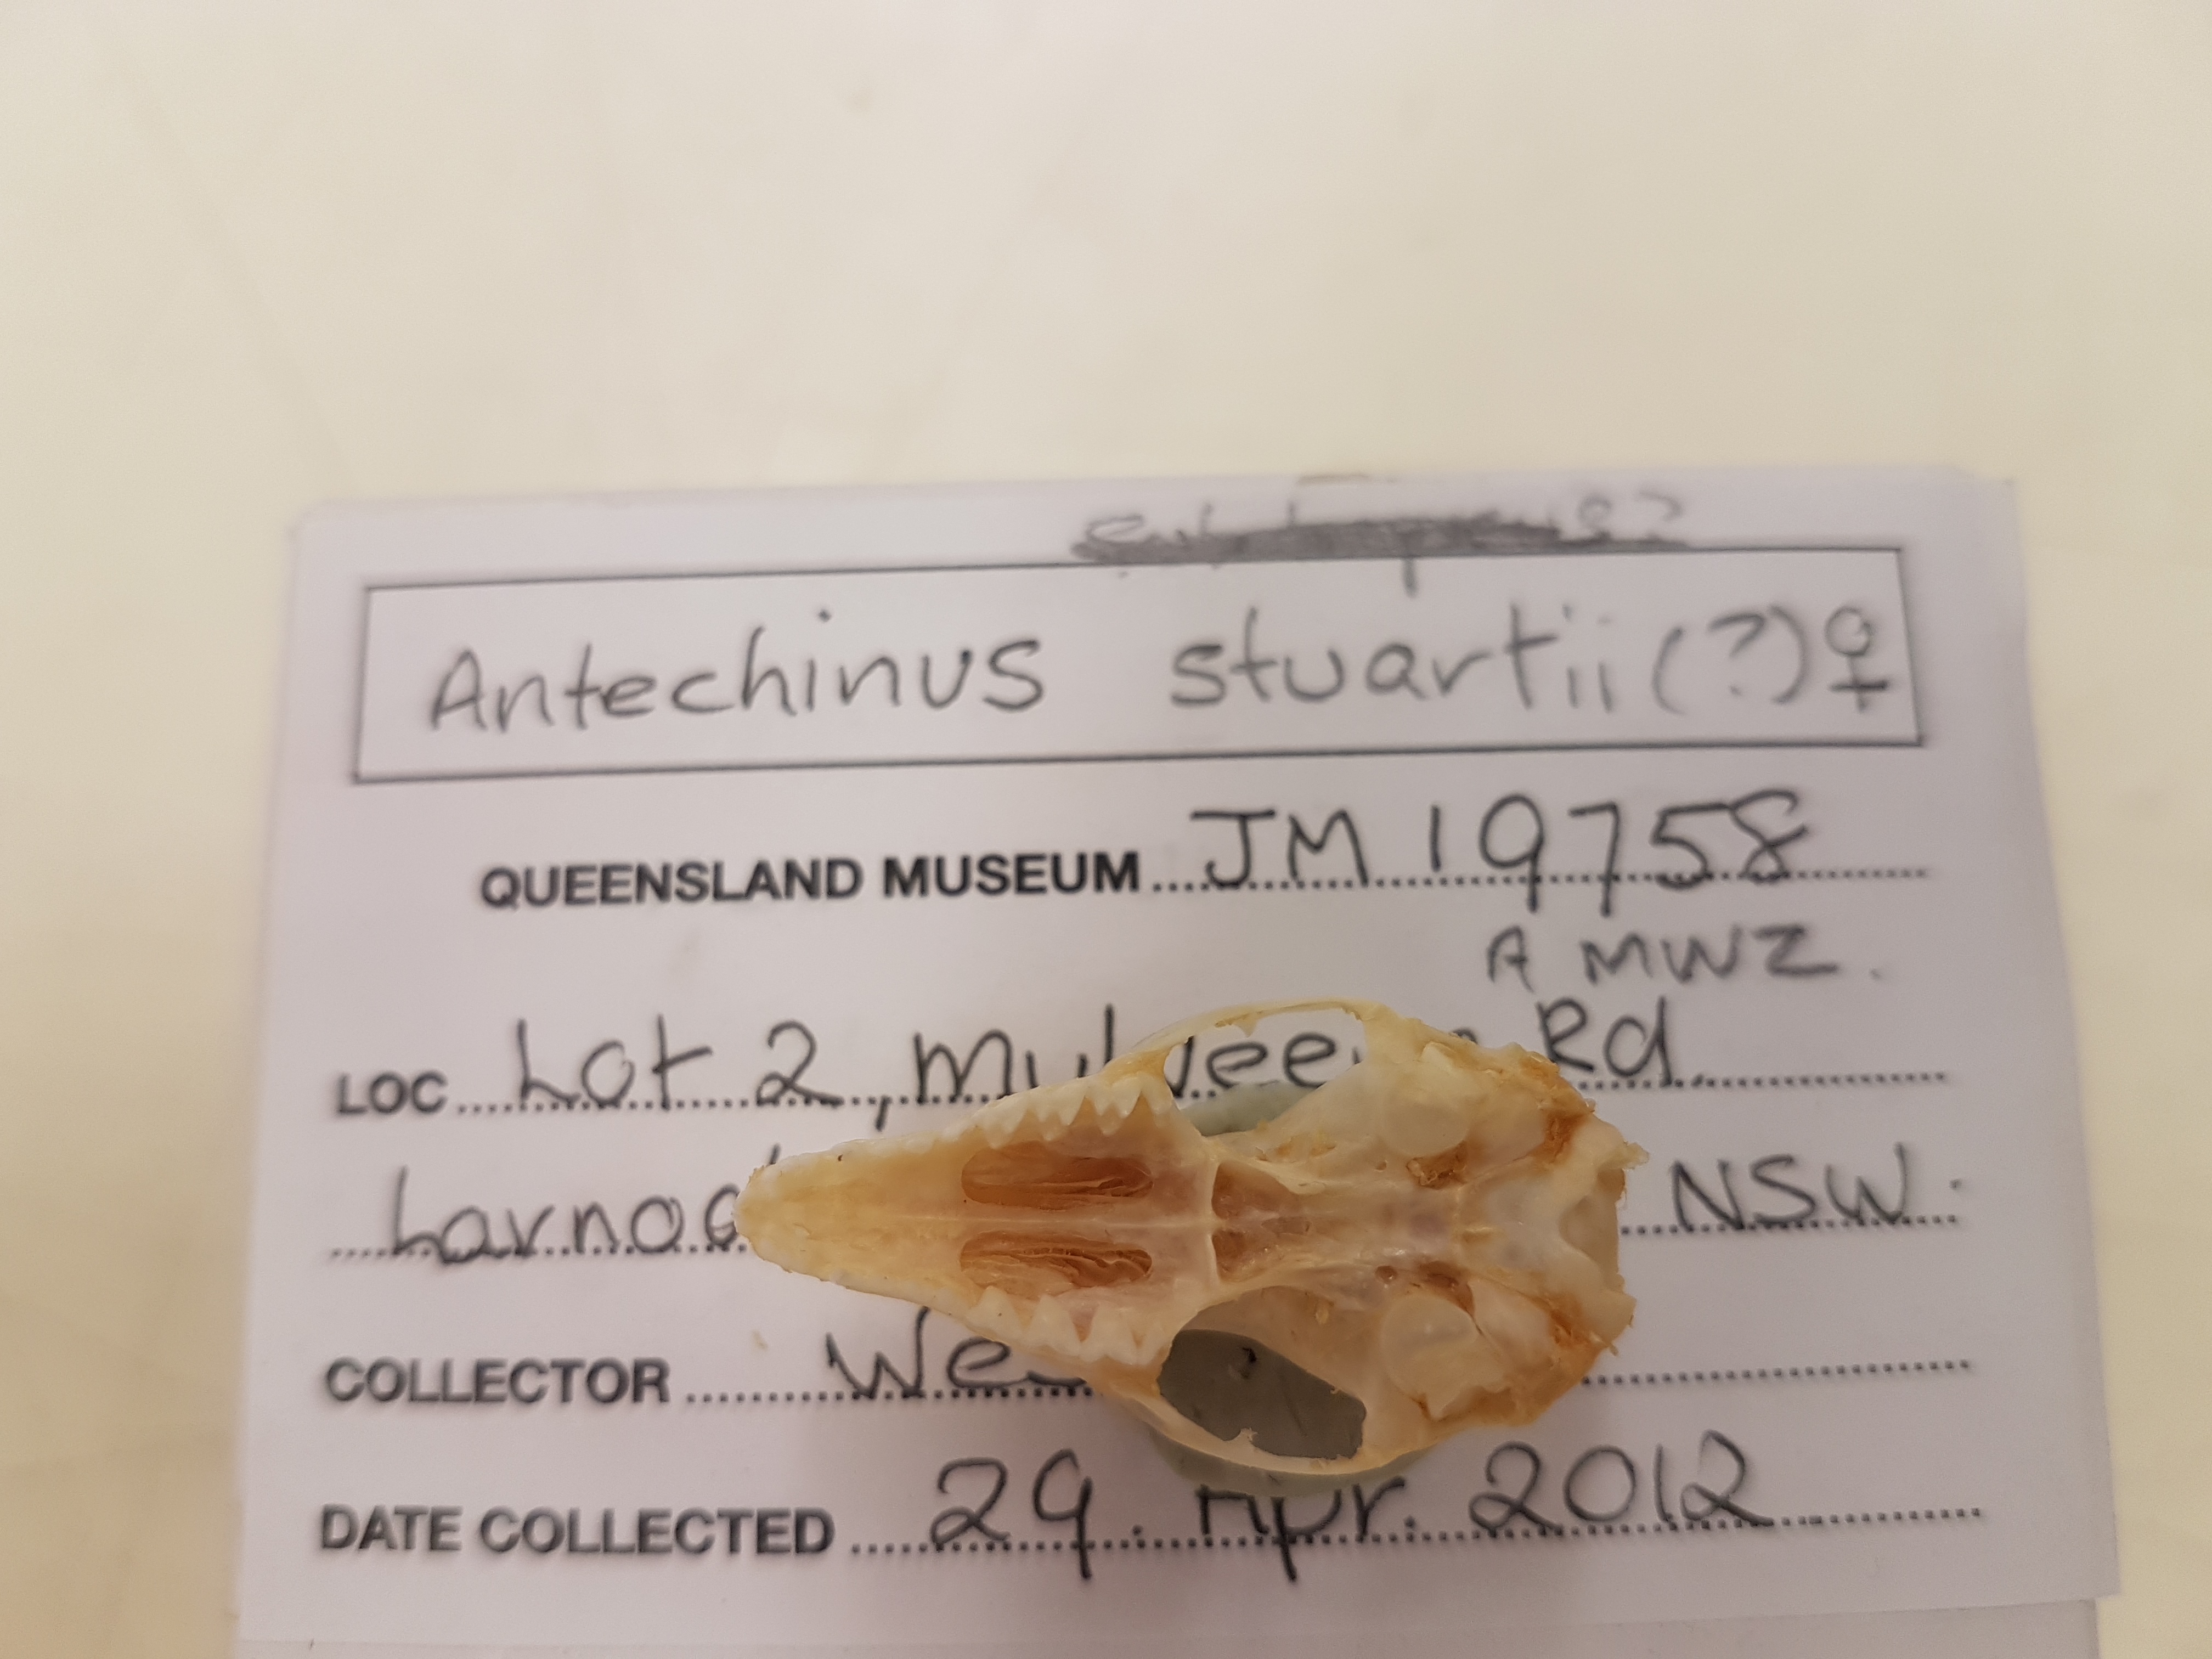 Antechinus stuartii (?) ♀
QUEENSLAND MUSEUM JM 19758
AMWZ.
LOC Lot 2, Rd
NSW.
COLLECTOR
DATE COLLECTED 29. Apr. 2012